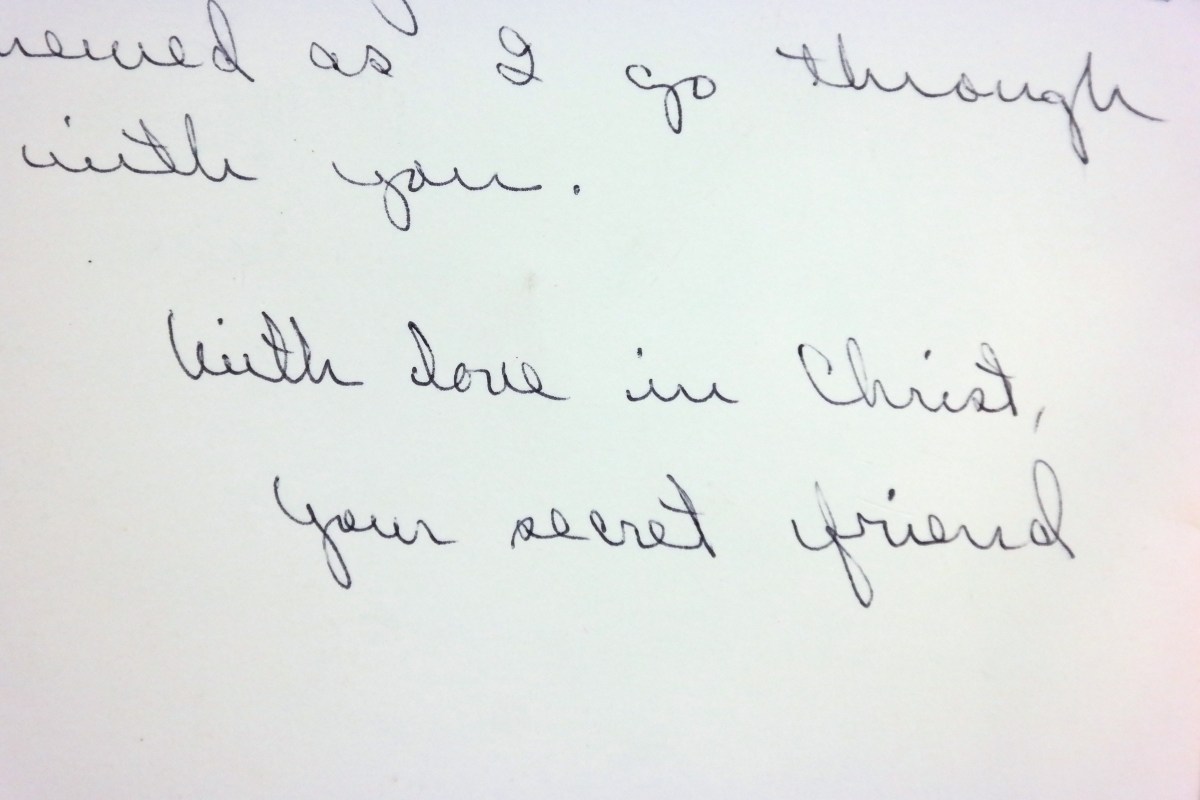 newed as I go through
with you.
With love in Christ,
Your secret friend